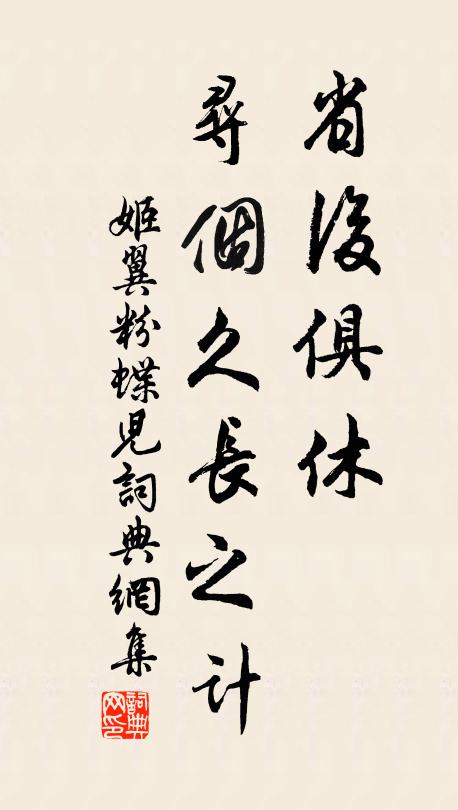 省後俱休
尋個久長之計
姬翼粉蝶兒詞典網集
詞典網印